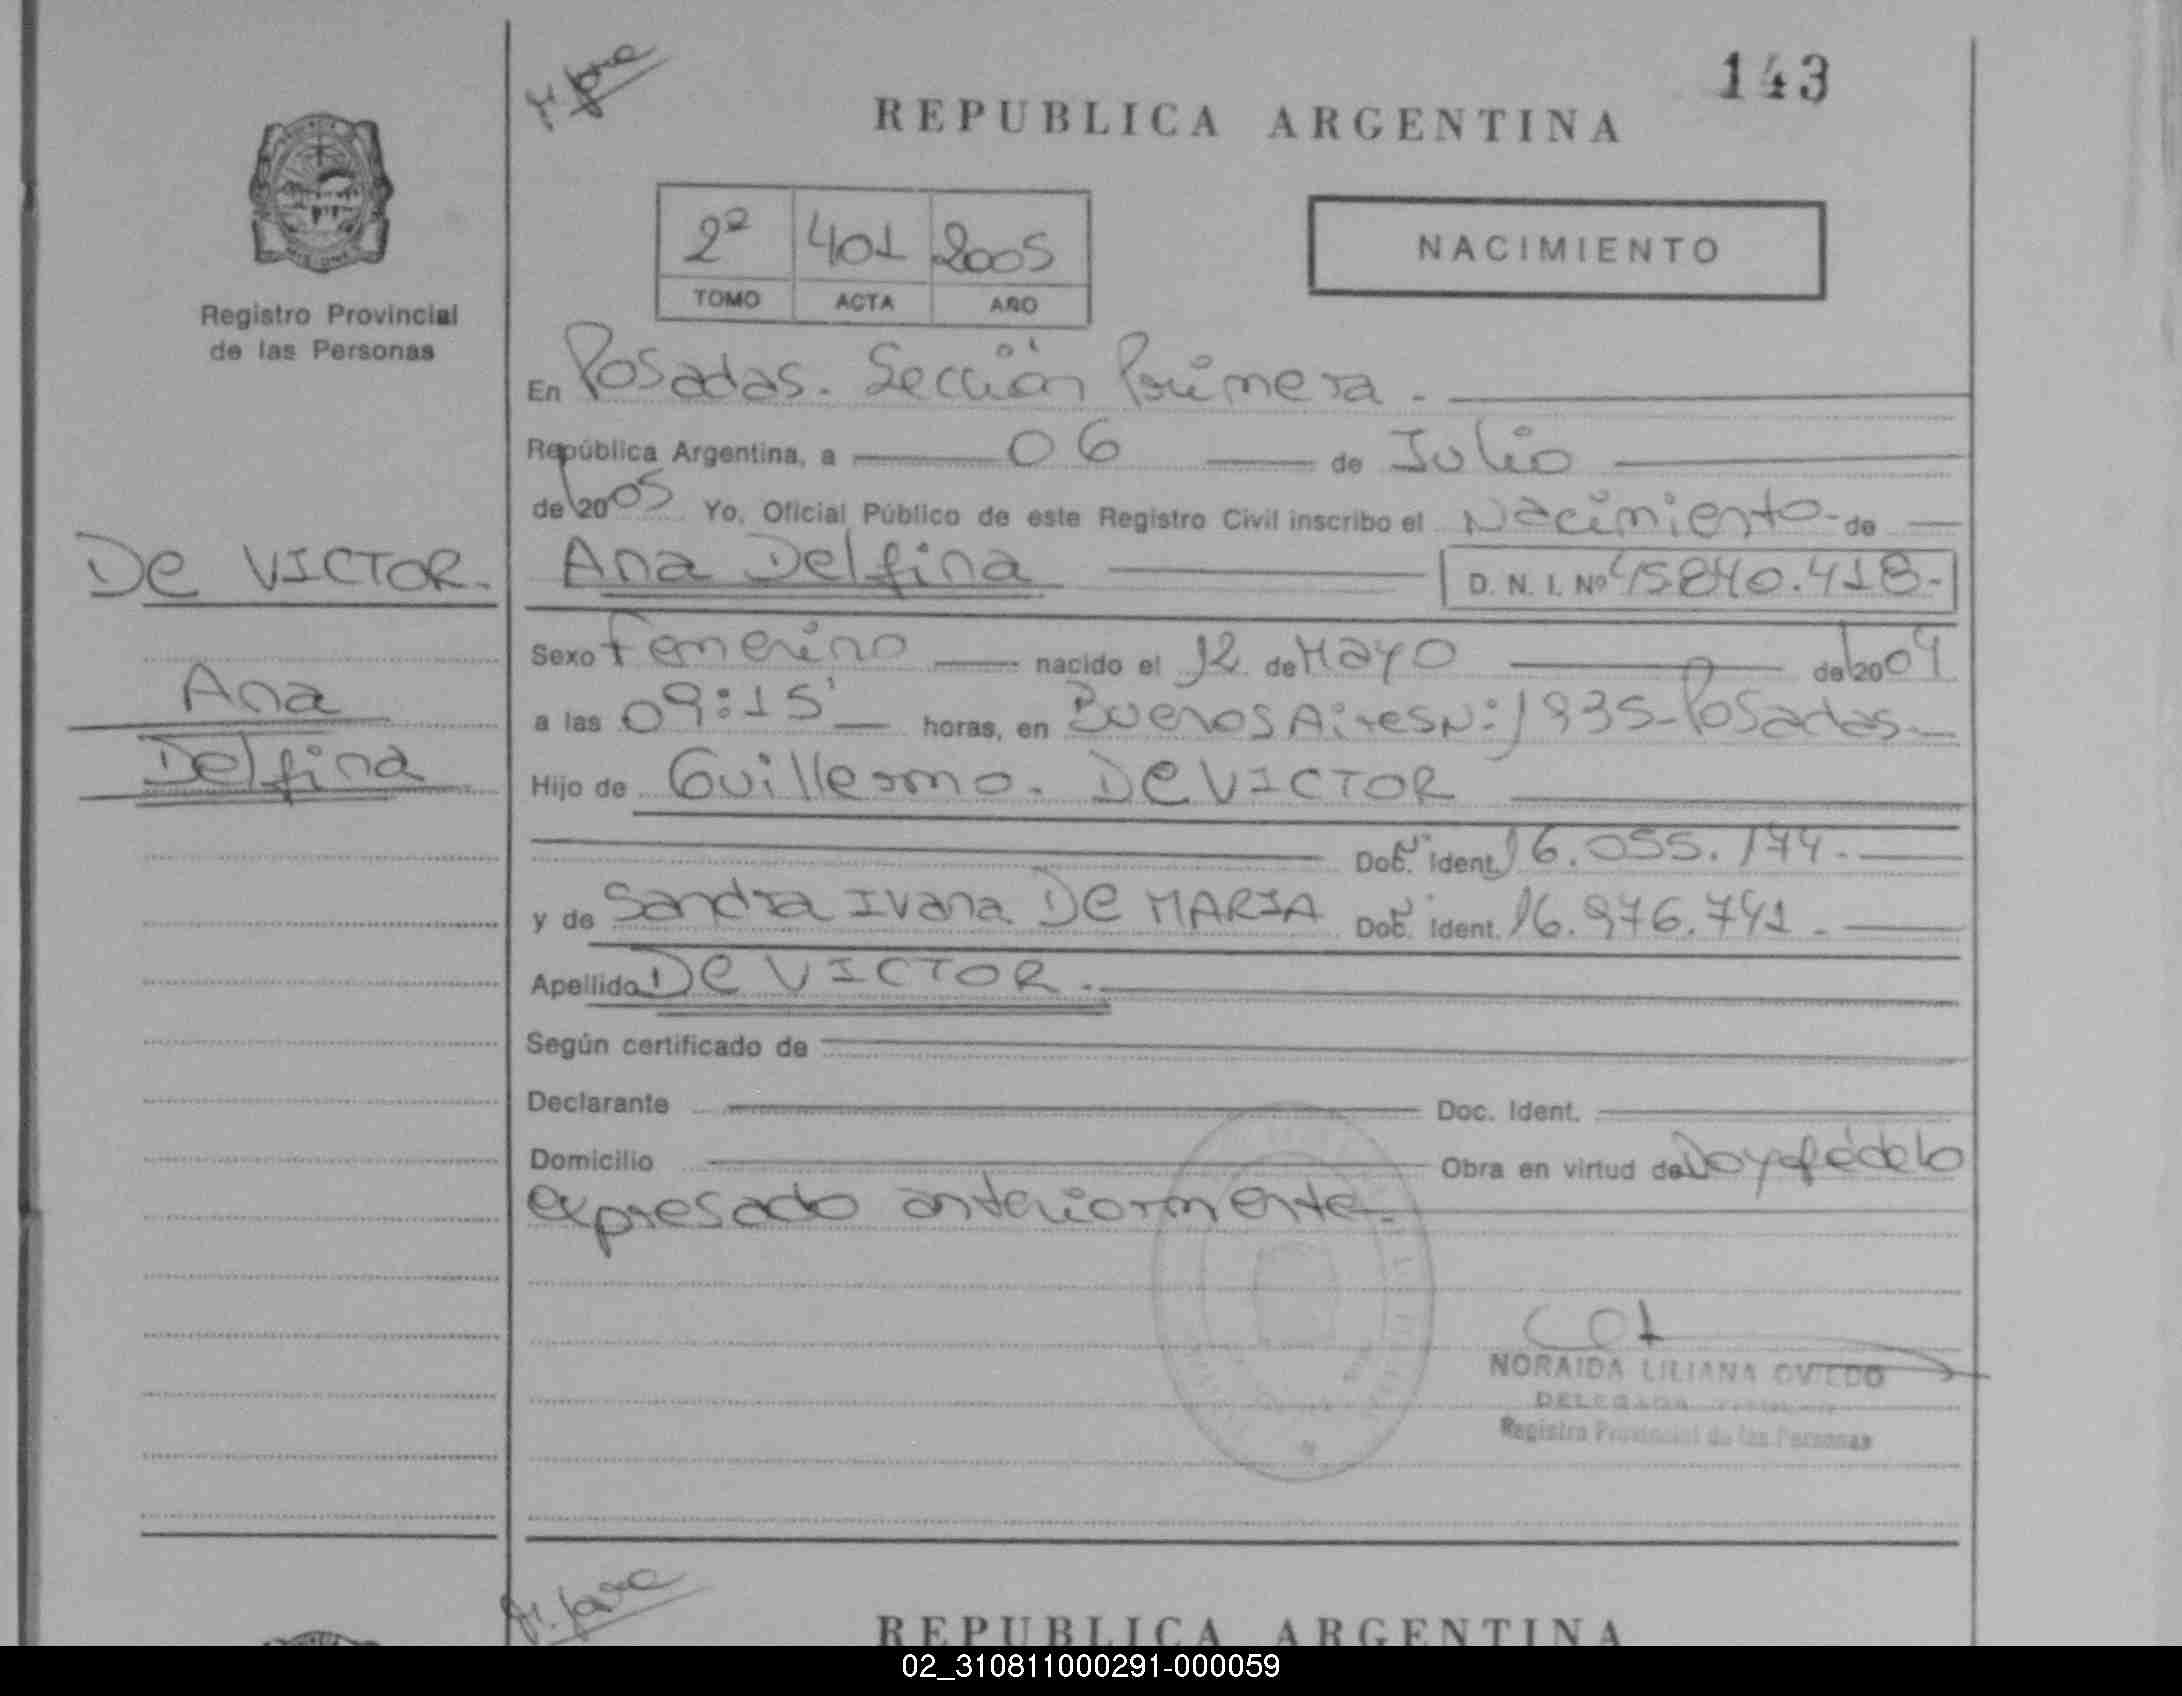 143
REPUBLICA ARGENTINA
2º 401 2005
TOMO ACTA AÑO
NACIMIENTO
Registro Provincial
de las Personas
En Posadas. Sección Primera.
República Argentina, a 06 de Julio
de 2005 Yo, Oficial Público de este Registro Civil inscribo el Nacimiento de
DE VICTOR.
Ana Delfina D. N. I. Nº 45840.418.-
Ana
Delfina
Sexo Femenino nacido el 12 de Mayo de 2004
a las 09:15' horas, en Buenos Aires Nº: 1935-Posadas.
Hijo de Guillermo. DE VICTOR
Doc. Ident. 16.055.174.
y de Sandra Ivana DE MARIA Doc. Ident. 16.976.741.
Apellido DE VICTOR.
Según certificado de
Declarante Doc. Ident.
Domicilio Obra en virtud de Doy fé de lo
expresado anteriormente.
NORAIDA LILIANA OVIEDO
DELEGADA
Registro Provincial de las Personas
REPUBLICA ARGENTINA
02_310811000291-000059